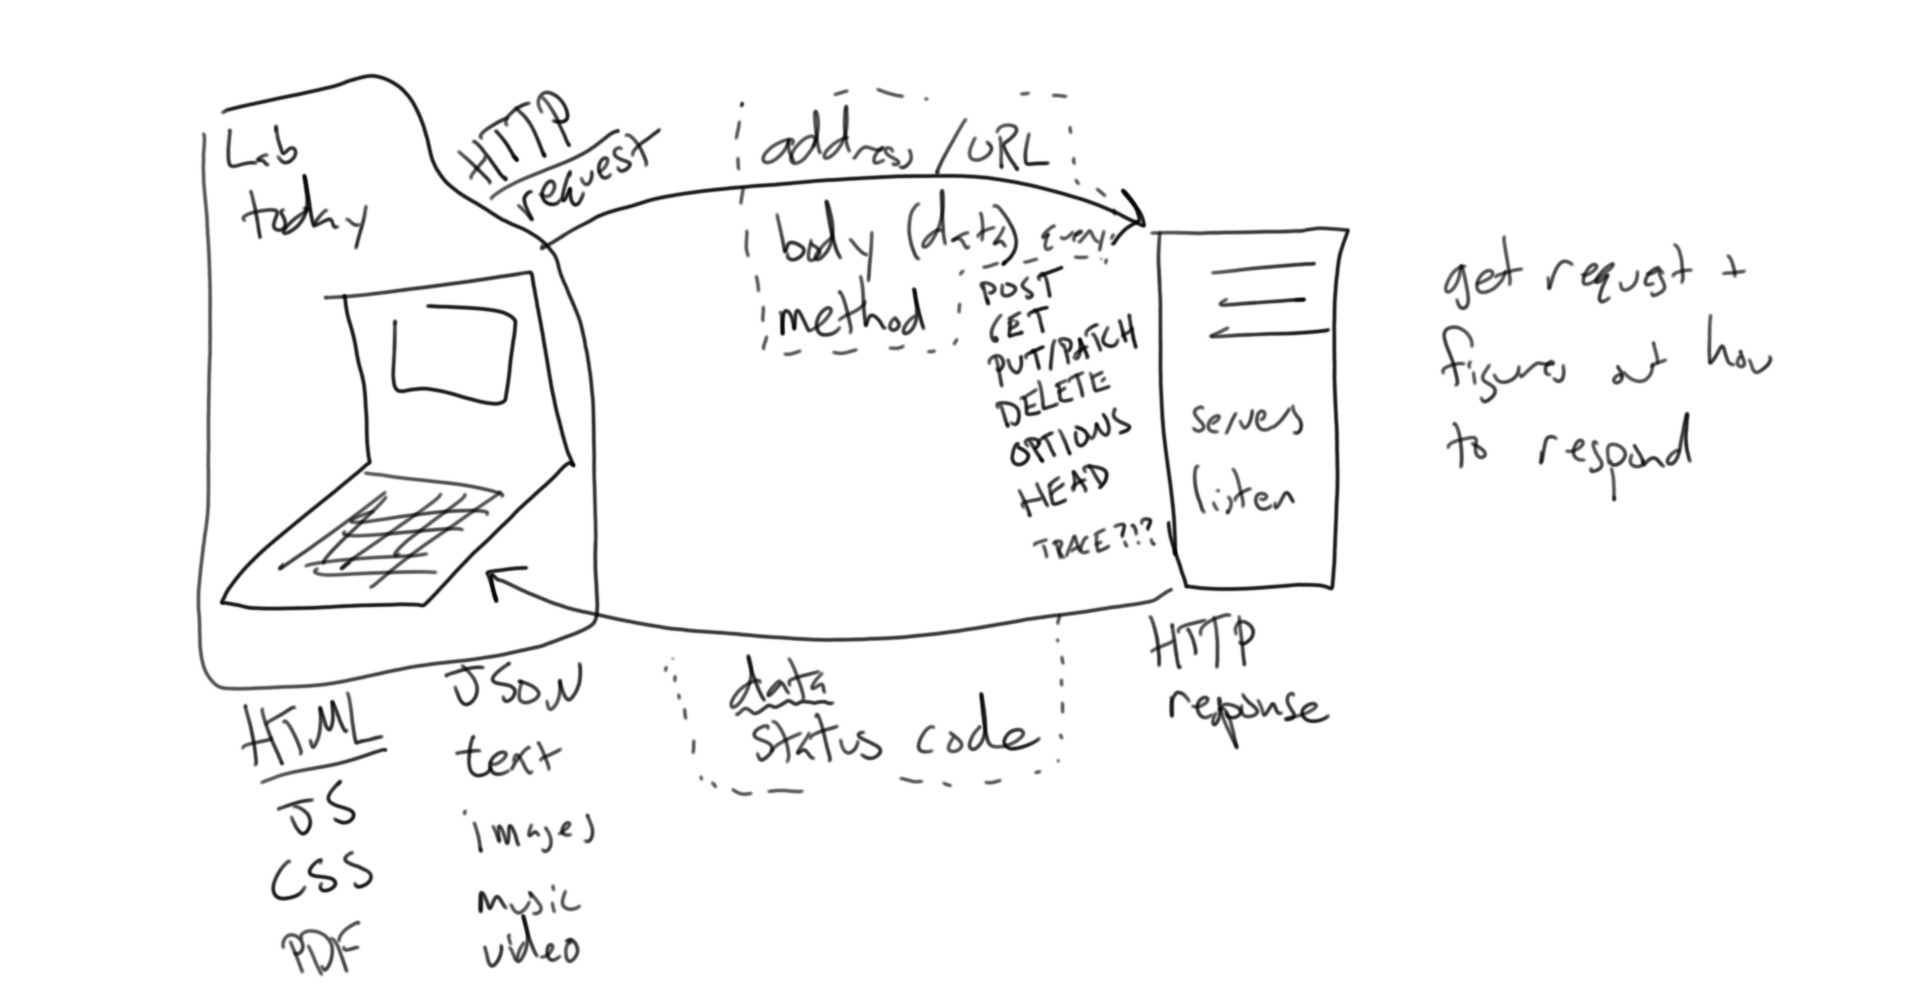 Lab
today
HTTP
request
address/URL
body (data) query
method
POST
GET
PUT/PATCH
DELETE
OPTIONS
HEAD
TRACE?!?
servers
listen
get request +
figures out how
to respond
HTTP
reponse
data
status code
HTML
JS
CSS
PDF
JSON
text
images
music
video